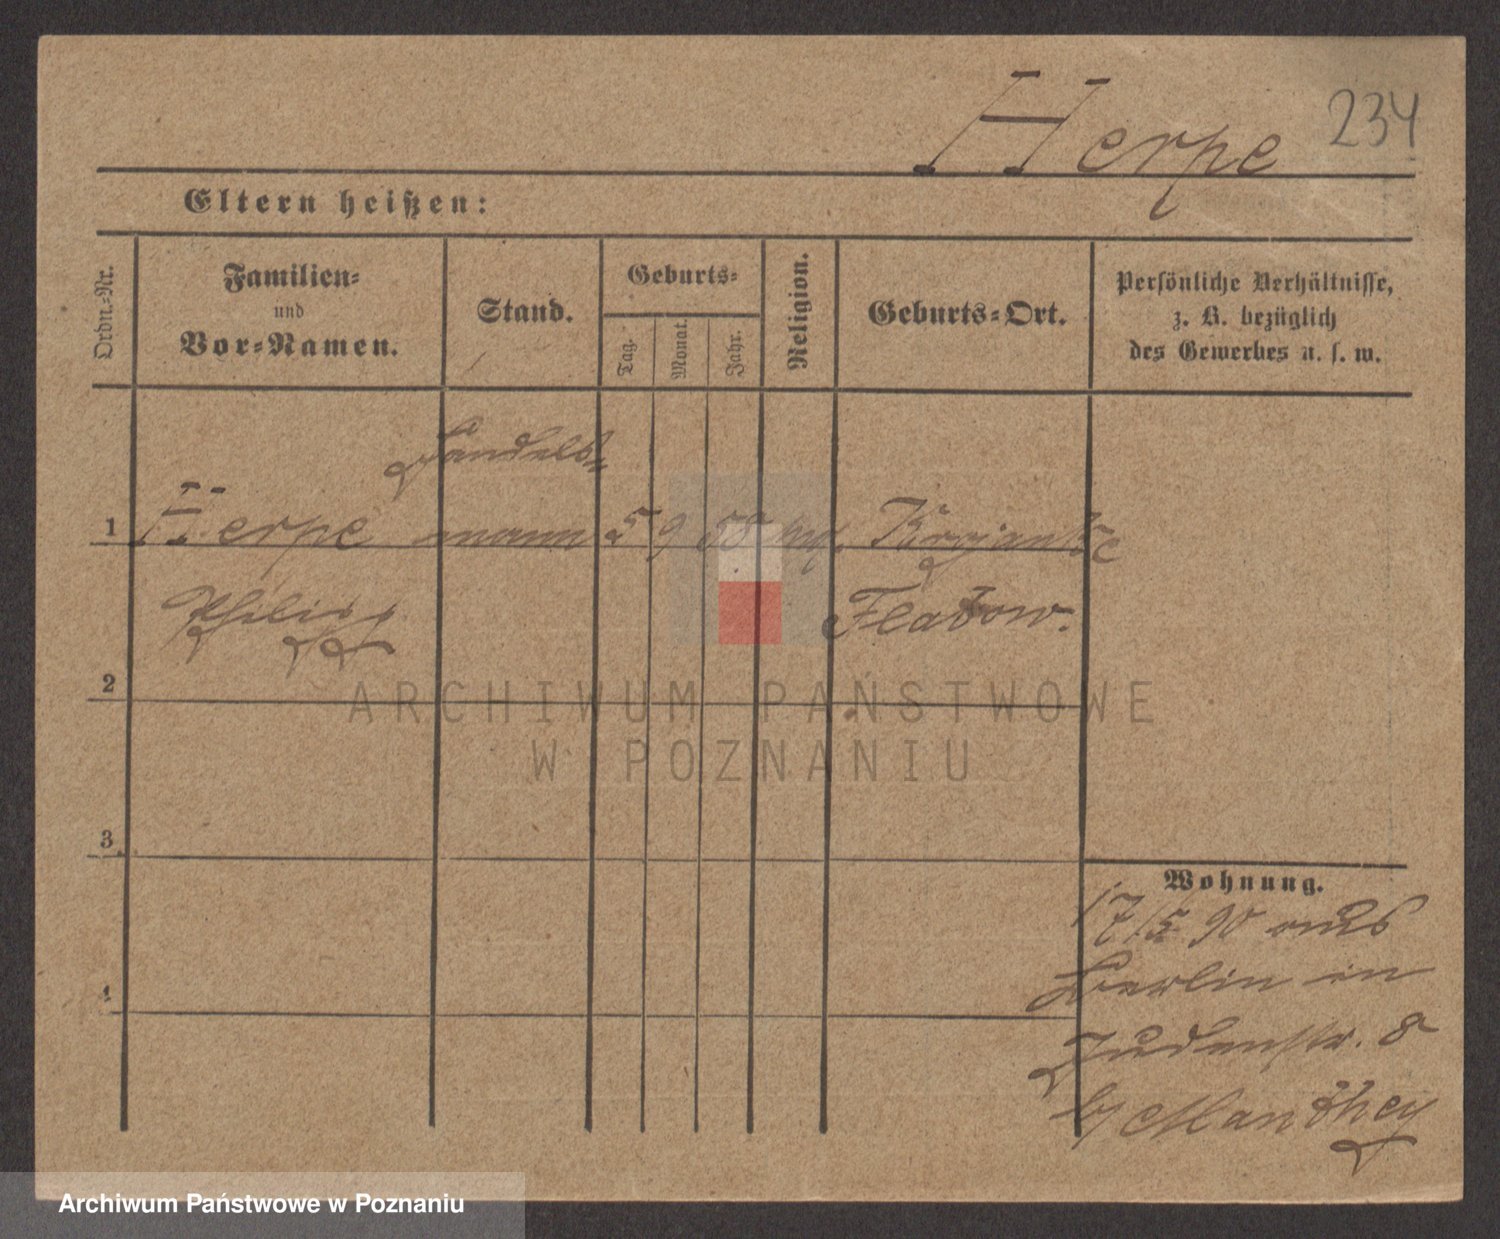 Herpe 234
Eltern heißen:
Ordn.-Nr.
Familien-
und
Vor-Namen.
Stand.
Geburts-
Tag.
Monat.
Jahr.
Religion.
Geburts-Ort.
Persönliche Verhältnisse,
z. B. bezüglich
des Gewerbes u. s. w.
Handels-
1 Herpe mann 5 9 58 Krojanke
Philipp Flatow.
2
3
4
Wohnung.
17/5 90 aus
Berlin in
Judenstr. 8
b/ Manthey
ARCHIWUM PAŃSTWOWE
W POZNANIU
Archiwum Państwowe w Poznaniu